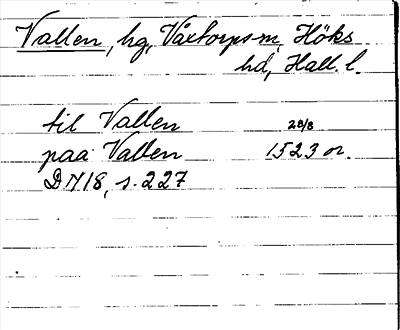 Vallen, hg, Våxtorps sn, Höks
hd, Hall. l.
til Vallen 28/8
paa Vallen 1523 or.
DN 18, s. 227